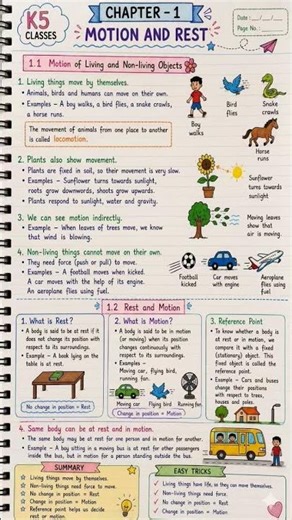 K5
CLASSES
CHAPTER - 1
MOTION AND REST
Date : __/__/__
Page No. : ____
1.1 Motion of Living and Non-living Objects
1. Living things move by themselves.
• Animals, birds and humans can move on their own.
• Examples – A boy walks, a bird flies, a snake crawls,
a horse runs.
The movement of animals from one place to another
is called locomotion.
Boy
walks
Bird
flies
Snake
crawls
Horse
runs
2. Plants also show movement.
• Plants are fixed in soil, so their movement is very slow.
• Examples – Sunflower turns towards sunlight,
roots grow downwards, shoots grow upwards.
• Plants respond to sunlight, water and gravity.
Sunflower
turns towards
sunlight
3. We can see motion indirectly.
• Example – When leaves of trees move, we know
that wind is blowing.
Moving leaves
show that
air is moving
4. Non-living things cannot move on their own.
• They need force (push or pull) to move.
• Examples – A football moves when kicked.
A car moves with the help of its engine.
An aeroplane flies using fuel.
Football
kicked
Car moves
with engine
Aeroplane
flies using
fuel
1.2 Rest and Motion
1. What is Rest?
• A body is said to be at rest if it
does not change its position
with respect to its
surroundings.
• Example – A book lying on
the table is at rest.
No change in position = Rest
2. What is Motion?
• A body is said to be in motion
(or moving) when its position
changes continuously with
respect to its surroundings.
• Example –
Moving car, flying bird,
running fan.
Moving car
Flying bird
Running fan
Change in position = Motion
3. Reference Point
• To know whether a body is
at rest or in motion, we
compare it with a fixed
(stationary) object. This
fixed object is called the
reference point.
• Example – Cars and buses
change their positions
with respect to trees,
houses and poles.
4. Same body can be at rest and in motion.
• The same body may be at rest for one person and in motion for another.
• Example – A boy sitting in a moving bus is at rest for other passengers
inside the bus, but in motion for a person standing outside the bus.
SUMMARY
Living things move by themselves.
Non-living things need force to move.
No change in position = Rest
Change in position = Motion
Reference point helps us decide
rest or motion.
EASY TRICKS
Living things have life, so they can move themselves.
Non-living things need force.
No change in position = Rest.
Change in position = Motion.